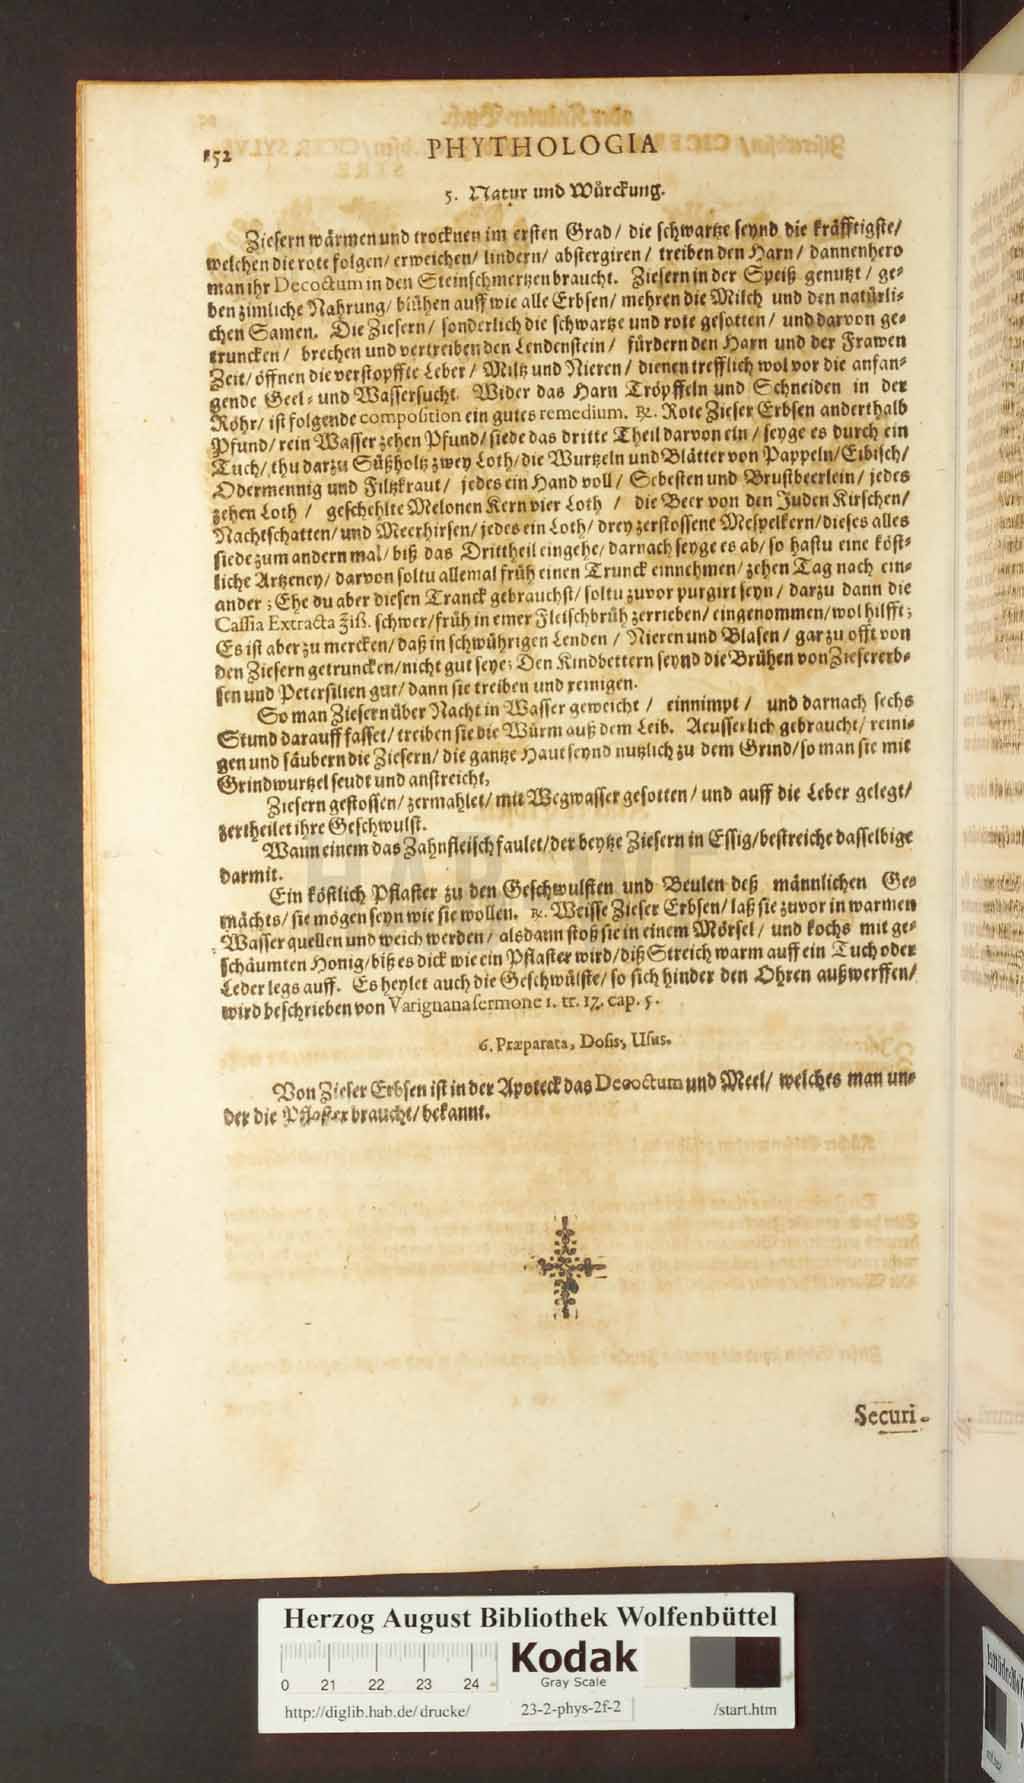 152
PHYTHOLOGIA
5. Natur und Würckung.
Ziesern wärmen und trocknen im ersten Grad/ die schwartze seynd die kräfftigste/
welchen die rote folgen/ erweichen/ lindern/ abstergiren/ treiben den Harn/ dannenhero
man ihr Decoctum in den Steinschmertzen braucht. Ziesern in der Speiß genutzt/ ge-
ben zimliche Nahrung/ blühen auff wie alle Erbsen/ mehren die Milch und den natürli-
chen Samen. Die Ziesern/ sonderlich die schwartze und rote gesotten/ und darvon ge-
truncken/ brechen und vertreiben den Lendenstein/ fürdern den Harn und der Frawen
Zeit/ öffnen die verstopffte Leber/ Miltz und Nieren/ dienen trefflich wol vor die anfan-
gende Geel- und Wassersucht. Wider das Harn Tröpffeln und Schneiden in der
Röhr/ ist folgende composition ein gutes remedium. ℞. Rote Zieser Erbsen anderthalb
Pfund/ rein Wasser zehen Pfund/ siede das dritte Theil darvon ein/ seyge es durch ein
Tuch/ thu darzu Süßholtz zwey Loth/ die Wurtzeln und Blätter von Pappeln/ Eibisch/
Odermennig und Filtzkraut/ jedes ein Hand voll/ Sebesten und Brustbeerlein/ jedes
zehen Loth/ geschehlte Melonen Kern vier Loth/ die Beer von den Juden Kirschen/
Nachtschatten/ und Meerhirsen/ jedes ein Loth/ drey zerstossene Mespelkern/ dieses alles
siede zum andern mal/ biß das Drittheil eingehe/ darnach seyge es ab/ so hastu eine köst-
liche Artzeney/ darvon soltu allemal früh einen Trunck einnehmen/ zehen Tag nach ein-
ander; Ehe du aber diesen Tranck gebrauchst/ soltu zuvor purgirt seyn/ darzu dann die
Cassia Extracta ʒiß. schwer/ früh in einer Fleischbrüh zerrieben/ eingenommen/ wol hilfft;
Es ist aber zu mercken/ daß in schwührigen Lenden/ Nieren und Blasen/ gar zu offt von
den Ziesern getruncken/ nicht gut seye; Den Kindbettern seynd die Brühen von Ziesererb-
sen und Petersilien gut/ dann sie treiben und reinigen.
So man Ziesern über Nacht in Wasser geweicht/ einnimpt/ und darnach sechs
Stund darauff fastet/ treiben sie die Würm auß dem Leib. Aeusserlich gebraucht/ reini-
gen und säubern die Ziesern/ die gantze Haut seynd nutzlich zu dem Grind/ so man sie mit
Grindwurtzel seudt und anstreicht,
Ziesern gestossen/ zermahlet/ mit Wegwasser gesotten/ und auff die Leber gelegt/
zertheilet ihre Geschwulst.
Wann einem das Zahnfleisch faulet/ der beytze Ziesern in Essig/ bestreiche dasselbige
darmit.
Ein köstlich Pflaster zu den Geschwulsten und Beulen deß männlichen Ge-
mächts/ sie mögen seyn wie sie wollen. ℞. Weisse Zieser Erbsen/ laß sie zuvor in warmen
Wasser quellen und weich werden/ alsdann stoß sie in einem Mörsel/ und kochs mit ge-
schäumten Honig/ biß es dick wie ein Pflaster wird/ diß Streich warm auff ein Tuch oder
Leder legs auff. Es heylet auch die Geschwülste/ so sich hinder den Ohren außwerffen/
wird beschrieben von Varignana sermone 1. tr. 17. cap. 5.
6. Præparata, Dosis, Usus.
Von Zieser Erbsen ist in der Apoteck das Decoctum und Meel/ welches man un-
der die Pflaster braucht/ bekannt.
Securi-
Herzog August Bibliothek Wolfenbüttel
Kodak
Gray Scale
0 21 22 23 24
http://diglib.hab.de/drucke/ 23-2-phys-2f-2 /start.htm